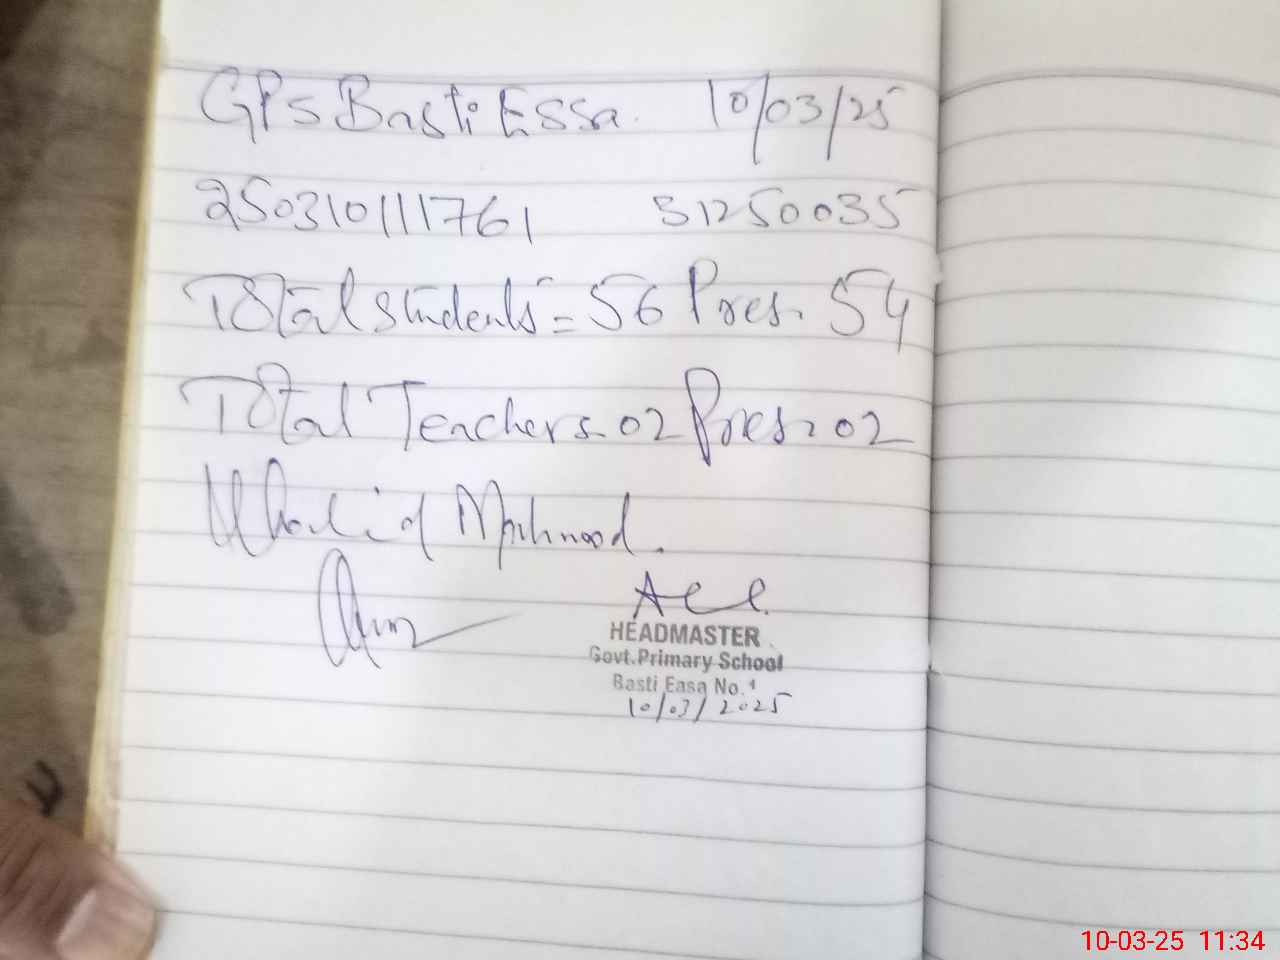 GPS Basti Essa. 10/03/25
250310111761 31250035
Total students = 56 Pres. 54
Total Teachers - 02 Pres. 02
Khalid Mahmood.
HEADMASTER
Govt. Primary School
Basti Easa No. 1
10/03/2025
10-03-25 11:34